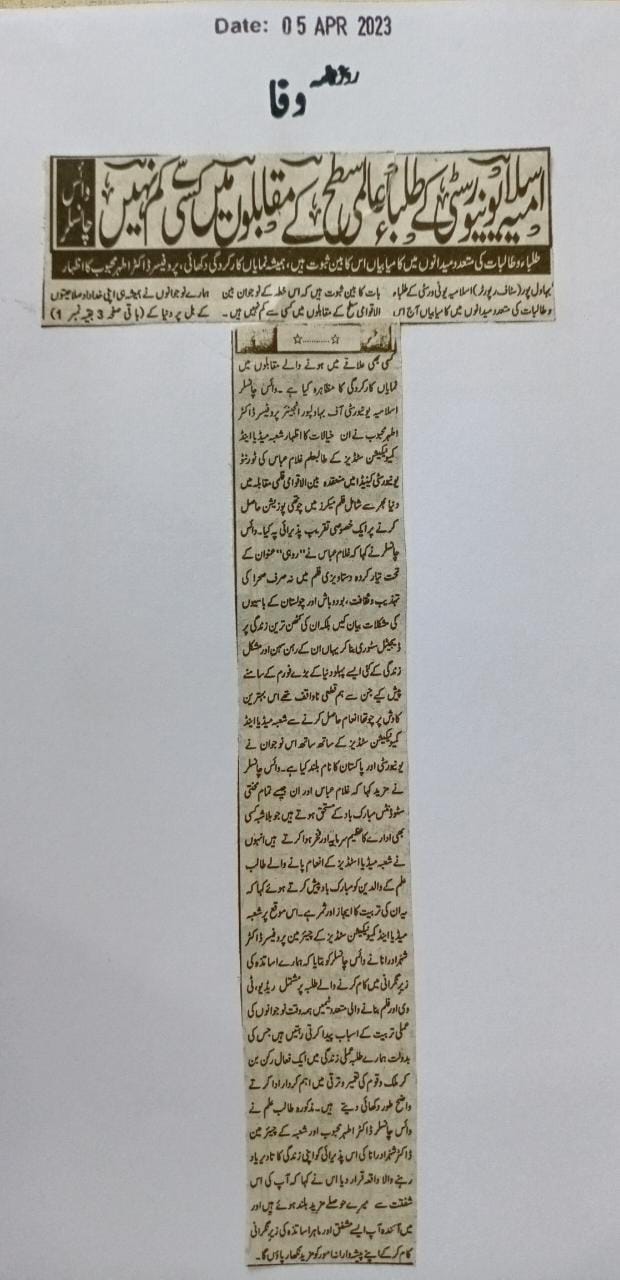 Date: 05 APR 2023
روزنامہ
وفا
اسلامیہ یونیورسٹی کے طلباء عالمی سطح کے مقابلوں میں کسی سے کم نہیں
وائس چانسلر
طلباء و طالبات کی متعدد میدانوں میں کامیابیاں اس کا بین ثبوت ہیں، ہمیشہ نمایاں کارکردگی دکھائی، پروفیسر ڈاکٹر اطہر محبوب کا اظہار
بہاولپور (سٹاف رپورٹر) اسلامیہ یونیورسٹی کے طلباء
و طالبات کی متعدد میدانوں میں کامیابیاں آج اس
بات کا بین ثبوت ہیں کہ اس خطہ کے نوجوان بین
الاقوامی سطح کے مقابلوں میں کسی سے کم نہیں ہیں۔
ہمارے نوجوانوں نے ہمیشہ ہی اپنی خداداد صلاحیتوں
کے بل پر دنیا کے (باقی صفحہ 3 بقیہ نمبر 1)
☆............☆
کسی بھی علاقے میں ہونے والے مقابلوں میں
نمایاں کارکردگی کا مظاہرہ کیا ہے۔ وائس چانسلر
اسلامیہ یونیورسٹی آف بہاولپور انجینئر پروفیسر ڈاکٹر
اطہر محبوب نے ان خیالات کا اظہار شعبہ میڈیا اینڈ
کمیونیکیشن سٹڈیز کے طالبعلم غلام عباس کی ٹورنٹو
یونیورسٹی کینیڈا میں منعقدہ بین الاقوامی فلمی مقابلہ میں
دنیا بھر سے شامل فلم میکرز میں چوتھی پوزیشن حاصل
کرنے پر ایک خصوصی تقریب پذیرائی پہ کیا۔ وائس
چانسلر نے کہا کہ غلام عباس نے "روہی" عنوان کے
تحت تیار کردہ دستاویزی فلم میں نہ صرف صحرا کی
تہذیب و ثقافت، بود و باش اور چولستان کے باسیوں
کی مشکلات بیان کیں بلکہ ان کی کٹھن ترین زندگی پر
ڈیجیٹل سٹوری بنا کر یہاں ان کے رہن سہن اور مشکل
زندگی کے کئی ایسے پہلو دنیا کے بڑے فورم کے سامنے
پیش کیے جن سے ہم قطعی ناواقف تھے اس بہترین
کاوش پر چوتھا انعام حاصل کرنے سے شعبہ میڈیا اینڈ
کمیونیکیشن سٹڈیز کے ساتھ ساتھ اس نوجوان نے
یونیورسٹی اور پاکستان کا نام بلند کیا ہے۔ وائس چانسلر
نے مزید کہا کہ غلام عباس اور ان جیسے تمام محنتی
سٹوڈنٹس مبارک باد کے مستحق ہوتے ہیں جو بلاشبہ کسی
بھی ادارے کا عظیم سرمایہ اور فخر ہوا کرتے ہیں انہوں
نے شعبہ میڈیا اسٹڈیز کے انعام پانے والے طالب
علم کے والدین کو مبارک باد پیش کرتے ہوئے کہا کہ
یہ ان کی تربیت کا اعجاز اور ثمر ہے۔ اس موقع پر شعبہ
میڈیا اینڈ کمیونیکیشن سٹڈیز کے چیئرمین پروفیسر ڈاکٹر
شہزاد رانا نے وائس چانسلر کو بتایا کہ ہمارے اساتذہ کی
زیر نگرانی میں کام کرنے والے طلبہ پر مشتمل ریڈیو، ٹی
وی اور فلم بنانے والی متعدد ٹیمیں ہمہ وقت نوجوانوں کی
عملی تربیت کے اسباب پیدا کرتی رہتیں ہیں جس کی
بدولت ہمارے طلبہ عملی زندگی میں ایک فعال رکن بن
کر ملک و قوم کی تعمیر و ترقی میں اہم کردار ادا کرتے
واضح طور دکھائی دیتے ہیں۔ مذکورہ طالب علم نے
وائس چانسلر ڈاکٹر اطہر محبوب اور شعبہ کے چیئرمین
ڈاکٹر شہزاد رانا کی اس پذیرائی کو اپنی زندگی کا تا دیر یاد
رہنے والا واقعہ قرار دیا اس نے کہا کہ آپ کی اس
شفقت سے میرے حوصلے مزید بلند ہوئے ہیں اور
میں آئندہ آپ ایسے مشفق اور ماہر اساتذہ کی زیر نگرانی
کام کر کے اپنے پیشہ وارانہ امور کو مزید نکھار پاؤں گا۔